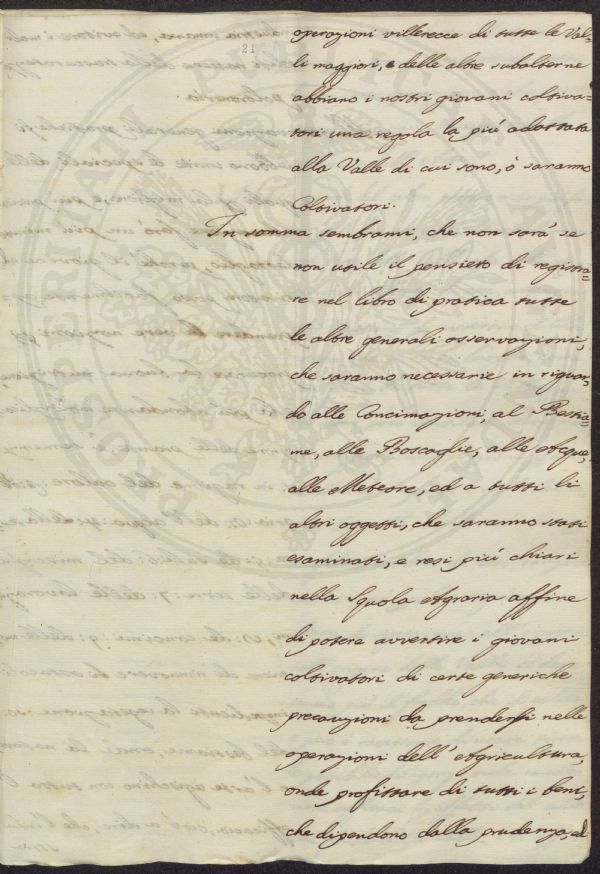 21
operazioni villerecce di tutte le Val=
li maggiori, e delle altre subalterne
abbiano i nostri giovani coltiva=
tori una regola la più adattata
alla Valle di cui sono, ò saranno
Coltivatori.
In somma sembrami, che non sarà se
non utile il pensiero di registra=
re nel libro di pratica tutte
le altre generali osservazioni,
che saranno necessarie in riguar=
do alle Concimazioni, al Bestia=
me, alle Boscaglie, alle Acque,
alle Meteore, ed a tutti li
altri oggetti, che saranno stati
esaminati, e resi più chiari
nella Squola Agraria affine
di potere avvertire i giovani
coltivatori di certe generiche
precauzioni da prendersi nelle
operazioni dell' Agricultura,
onde profittare di tutti i beni,
che dipendono dalla prudenza, ed